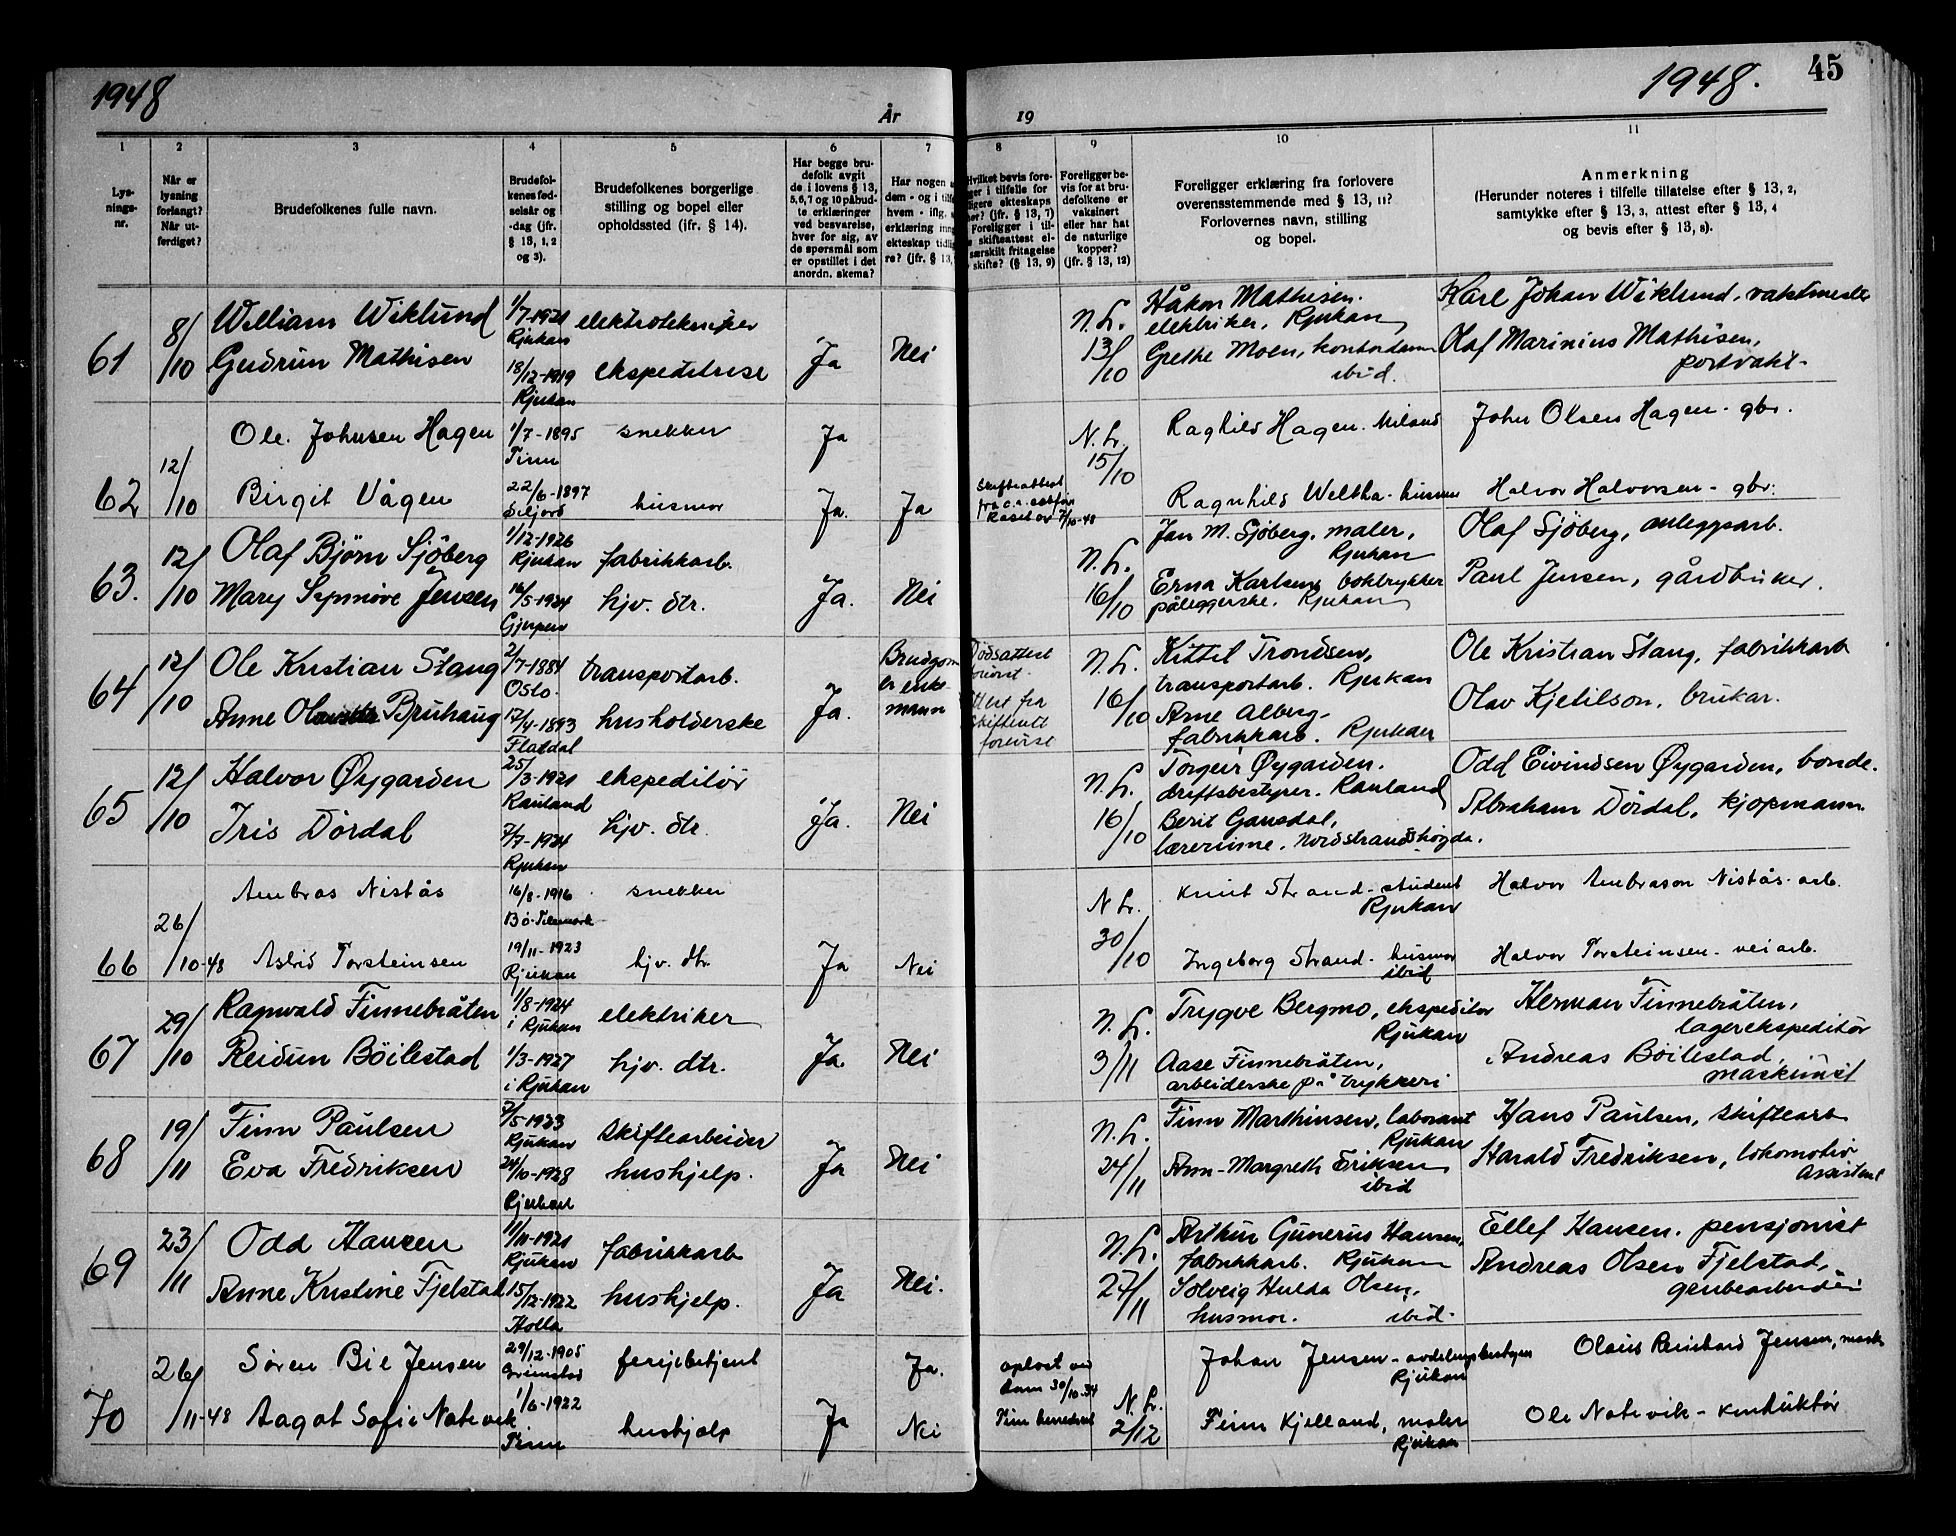 1948
1948.
45
År
19
1
2
3
4
5
6
7
8
9
10
11
Lys-
nings-
nr.
Når er
lysning
forlangt?
Når ut-
ferdiget?
Brudefolkenes fulle navn.
Brudefol-
kenes fød-
selsår og
-dag (jfr.
§ 13, 1, 2
og 3).
Brudefolkenes borgerlige
stilling og bopel eller
opholdssted (jfr. § 14).
Har begge bru-
defolk avgit
de i lovens § 13,
5, 6, 7 og 10 påbud-
te erklæringer
ved besvarelse,
hver for sig, av
de spørsmål som
er opstillet i det
anordn. skema?
Har nogen
dem - og i
hvem - iflg.
erklæring
ekteskap
re? (jfr. § 13,
Hvilket bevis fore-
i tilfelle for
ekteskaps
(jfr. § 13, 7)
Foreligger i til-
skifteattest el-
særskilt fritagelse
skifte? (§ 13, 9)
Foreligger be-
vis for at bru-
defolkene er
vaksinert
eller har hat
de naturlige
kopper?
(jfr. § 13, 12)
Foreligger erklæring fra forlovere
overensstemmende med § 13, 11?
Forlovernes navn, stilling
og bopel.
Anmerkning
(Herunder noteres i tilfelle tillatelse efter § 13, 2,
samtykke efter § 13, 3, attest efter § 13, 4
og bevis efter § 13, 8).
61
8/10
William Wiklund
1/7-1921
Rjukan
elektrotekniker
Gudrun Mathisen
18/12-1919
Rjukan
ekspeditrise
Ja
Nei
N.L.
13/10
Håkon Mathisen.
elektriker, Rjukan
Grethe Moen, kontordame
ibid.
Karl Johan Wiklund, vaktmester
Olaf Marinius Mathisen,
portvakt-
62
12/10
Ole Johnsen Hagen
1/7-1895
Tinn
snekker
Ja
Birgit Vågen
22/6-1897
Seljord
husmor
Ja.
Ja
Skifteattest
7/10-48
N.L.
15/10
Ragnhild Hagen. Miland
Ragnhild Weltha - husmor
John Olsen Hagen - gbr.
Halvor Halvorsen - gbr.
63.
12/10
Olaf Bjørn Sjöberg
1/12-1926
Rjukan
fabrikkarb.
Mary Synnöve Jensen
16/5-1924
Gjerpen
hjv. dtr.
Ja.
Nei
N.L.
16/10
Jan M. Sjöberg, maler,
Rjukan
Erna Karlsen, boktrykker
påleggerske. Rjukan
Olaf Sjöberg, anleggsarb.
Paul Jensen, gårdbruker.
64
12/10
Ole Kristian Stang
2/7-1884
Oslo.
transportarb.
Anne Bruhaug
17/4-1893
Flatdal
husholderske
Ja.
Brudgom
er enke-
mann
Dödsattest
forevist.
Attest fra
Skifterett
forevist
N.L.
16/10
Kittil Trondsen,
transportarb. Rjukan
Arne Alberg,
fabrikkarb. Rjukan
Ole Kristian Stang, fabrikkarb
Olav Kjetilson, brukar.
65
12/10
Halvor Øygarden
25/3-1921
Rauland
ekspeditör
Iris Dördal
7/7-1924
Rjukan
hjv. dtr.
Ja.
Nei
N.L.
16/10
Torgeir Øygarden.
driftsbestyrer. Rauland
Berit Gausdal,
lærerinne. Nordstrandshögda.
Odd Eivindsen Øygarden, bonde.
Abraham Dördal, kjöpmann
66
26/10-48
Ambros Nistås
16/8-1916
Bø-Telemark
snekker
Astrid Torsteinsen
19/11-1923
Rjukan
hjv. dtr.
Ja
Nei
N L.
30/10
Knut Strand - student
Rjukan
Ingeborg Strand - husmor
ibid
Halvor Ambrosen Nistås - arb.
Halvor Torsteinsen - veiarb.
67
29/10
Ragnvald Finnebråten
1/8-1924
i Rjukan
elektriker
Reidun Böilestad
1/3-1927
i Rjukan
hjv. dtr.
Ja
Nei
N.L.
3/11
Trygve Bergmo, ekspeditör
Rjukan
Aase Finnebråten,
arbeiderske på trykkeri
Herman Finnebråten,
lagerekspeditör
Andreas Böilestad,
maskinist
68
19/11
Finn Paulsen
7/5-1923
Rjukan
skiftearbeider
Eva Fredriksen
24/10-1928
Rjukan
hushjelp.
Ja
Nei
N.L.
24/11
Finn Marthinsen, laborant
Rjukan
Ann-Margreth Eriksen
ibid
Hans Paulsen, skiftearb
Harald Fredriksen, lokomotiv
Assistent
69
23/11
Odd Hansen
11/11-1921
Rjukan
fabrikkarb
Anne Kristine Fjelstad
15/12-1922
Holla
hushjelp.
Ja
Nei.
N.L.
27/11
Arthur Gunerius Hansen,
fabrikkarb. Rjukan
Solveig Hulda Olsen,
husmor. ibid.
Ellef Hansen. pensjonist
Andreas Olsen Fjelstad,
grubearbeider
70
26/11-48
Sören Bie Jensen
29/12-1905
Grimstad
ferjebetjent
Ja.
Aagot Sofie Notevik
1/6-1922
Tinn
hushjelp
Ja
Nei
oplöst ved
dom 30/10-34
Tinn herredsrett
N.L.
2/12
Johan Jensen - avdelingsbestyrer
Rjukan
Finn Kjelland, maler
Rjukan
Olaus Reinhard Jensen, mask
Ole Notevik - konduktör